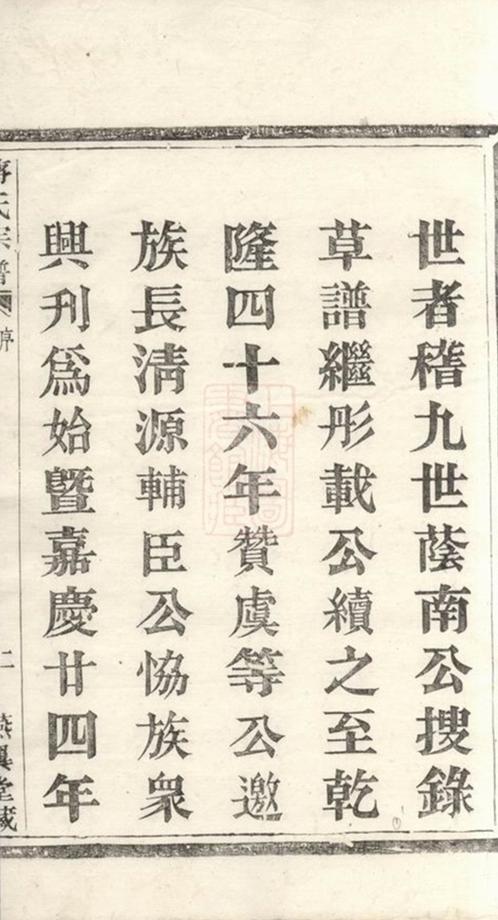 世者稽九世蔭南公搜錄
草譜繼彤載公續之至乾
隆四十六年贊虞等公邀
族長淸源輔臣公恊族衆
興刋爲始曁嘉慶廿四年
氏宗譜
二
堂藏